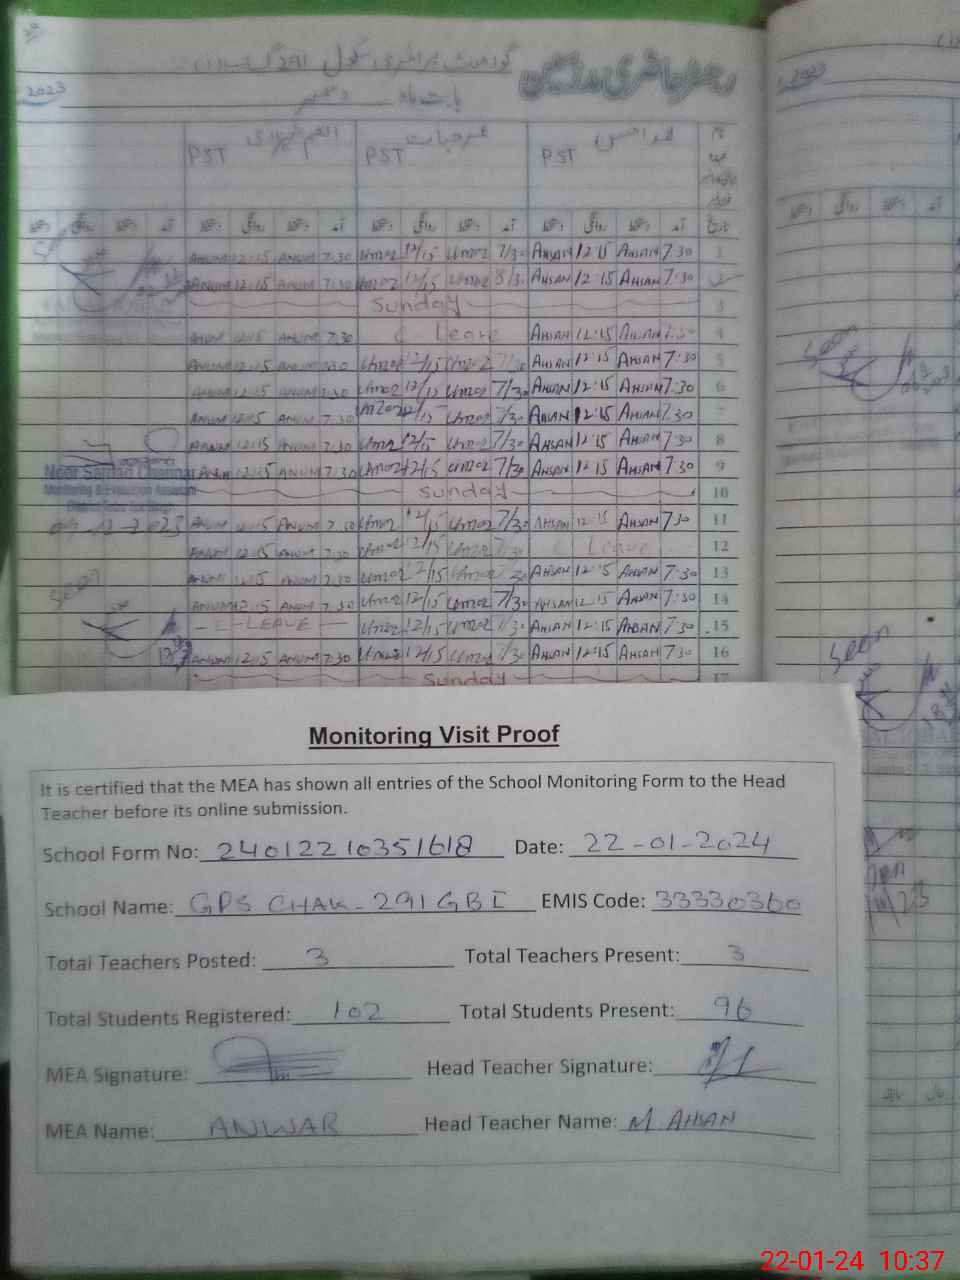 رجسٹر حاضری مدرسین گورنمنٹ پرائمری سکول 291 گ ب
بابت ماہ دسمبر 2023
2023
PST PST PST
آمد دستخط روانگی دستخط آمد دستخط روانگی دستخط آمد دستخط روانگی دستخط تاریخ
ANUM 12:15 ANUM 7:30 Umar 12/15 Umar 7/30 AHSAN 12:15 AHSAN 7:30 1
ANUM 12:15 ANUM 7:30 Umar 12/15 Umar 8/30 AHSAN 12:15 AHSAN 7:30 2
Sunday 3
ANUM 12:15 ANUM 7:30 C - Leave AHSAN 12:15 AHSAN 7:30 4
ANUM 12:15 ANUM 7:30 Umar 12/15 Umar 7/30 AHSAN 12:15 AHSAN 7:30 5
ANUM 12:15 ANUM 7:30 Umar 12/15 Umar 7/30 AHSAN 12:15 AHSAN 7:30 6
ANUM 12:15 ANUM 7:30 Umar 12/15 Umar 7/30 AHSAN 12:15 AHSAN 7:30 7
ANUM 12:15 ANUM 7:30 Umar 12/15 Umar 7/30 AHSAN 12:15 AHSAN 7:30 8
ANUM 12:15 ANUM 7:30 Umar 12/15 Umar 7/30 AHSAN 12:15 AHSAN 7:30 9
Monitoring & Evaluation Assistant
Sunday 10
ANUM 12:15 ANUM 7:30 Umar 12/15 Umar 7/30 AHSAN 12:15 AHSAN 7:30 11
ANUM 12:15 ANUM 7:30 Umar 12/15 Umar 7/30 C Leave 12
ANUM 12:15 ANUM 7:30 Umar 12/15 Umar 7/30 AHSAN 12:15 AHSAN 7:30 13
Seen
ANUM 12:15 ANUM 7:30 Umar 12/15 Umar 7/30 AHSAN 12:15 AHSAN 7:30 14
- C-LEAVE - Umar 12/15 Umar 7/30 AHSAN 12:15 AHSAN 7:30 15
ANUM 12:15 ANUM 7:30 Umar 12/15 Umar 7/30 AHSAN 12:15 AHSAN 7:30 16
Sunday 17
Seen
Seen
Monitoring Visit Proof
It is certified that the MEA has shown all entries of the School Monitoring Form to the Head
Teacher before its online submission.
School Form No: 24012210351618 Date: 22-01-2024
School Name: GPS CHAK-291GBI EMIS Code: 33330360
Total Teachers Posted: 3 Total Teachers Present: 3
Total Students Registered: 102 Total Students Present: 96
MEA Signature: Head Teacher Signature:
MEA Name: ANWAR Head Teacher Name: M AHSAN
22-01-24 10:37